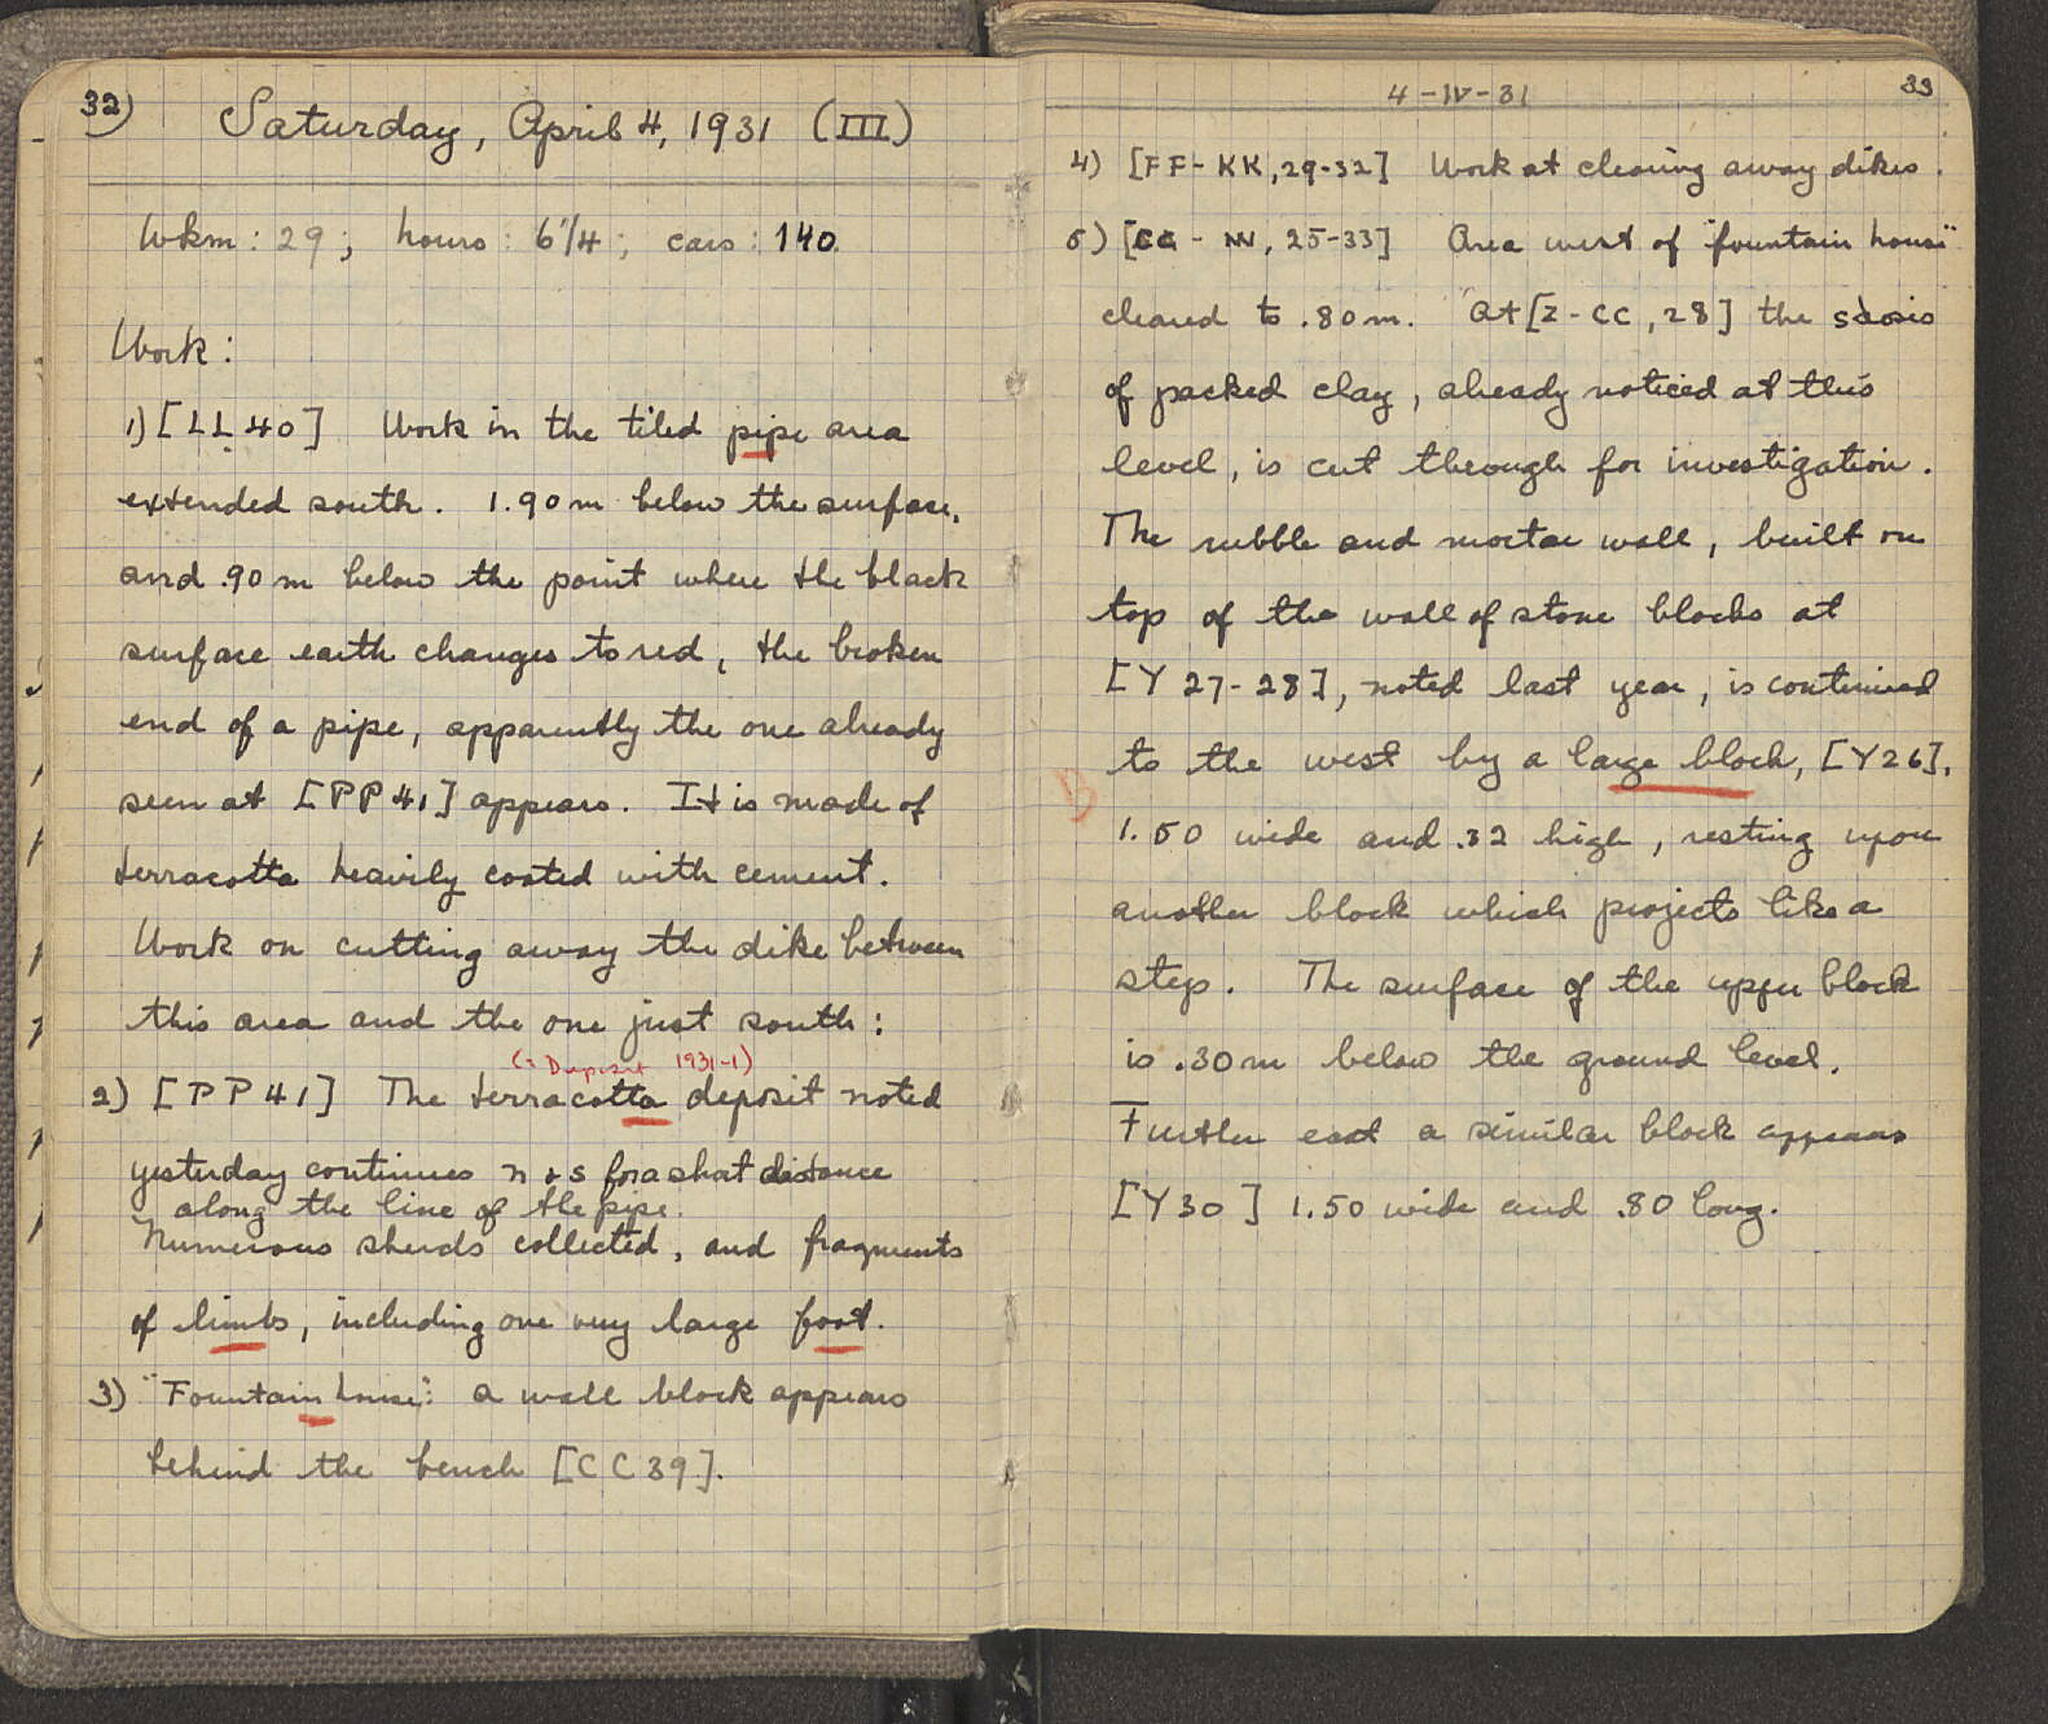 32)
Saturday, April 4, 1931 (III)
Wkm: 29; hours: 6 1/4; cars: 140.
Work:
1) [LL 40] Work in the tiled pipe area
extended south. 1.90 m below the surface,
and .90 m below the point where the black
surface earth changes to red, the broken
end of a pipe, apparently the one already
seen at [PP 41] appears. It is made of
terracotta heavily coated with cement.
Work on cutting away the dike between
this area and the one just south:
(= Deposit 1931-1)
2) [PP 41] The terracotta deposit noted
yesterday continues n & s for a short distance
along the line of the pipe.
Numerous sherds collected, and fragments
of limbs, including one very large foot.
3) "Fountain house": a wall block appears
behind the bench [CC 39].
4-IV-31
33
4) [FF-KK, 29-32] Work at clearing away dikes.
5) [CC - NN, 25-33] Area west of "fountain house"
cleared to .80 m. At [Z-CC, 28] the stosis
of packed clay, already noticed at this
level, is cut through for investigation.
The rubble and mortar wall, built on
top of the wall of stone blocks at
[Y 27-28], noted last year, is continued
to the west by a large block, [Y26],
1.50 wide and .32 high, resting upon
another block which projects like a
step. The surface of the upper block
is .30 m below the ground level.
Further east a similar block appears
[Y30] 1.50 wide and .80 long.